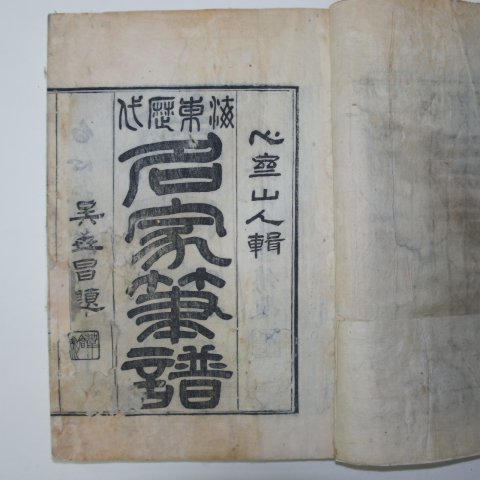 心齋山人輯
海東歷代
名家筆譜
吳世昌題